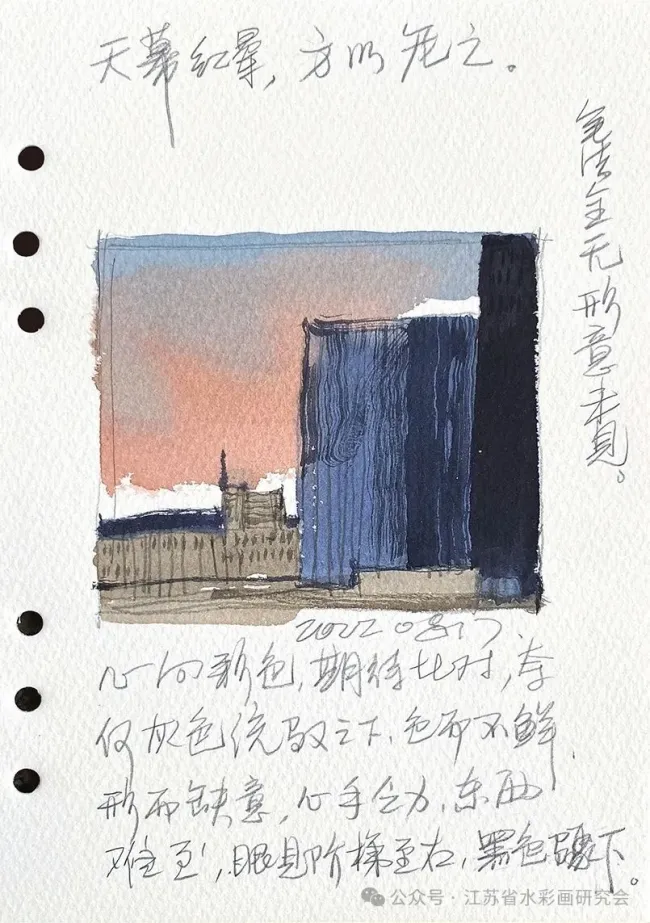 天幕红晕，方吶笼之。
笔法全无形意未见。
20220817.
心的彩色，期待比对，奈
何灰色统驭之下，色而不鲜，
形而缺意，心手乏力，东西
难至，眼见阶梯至右，黑色骤下。
公众号·江苏省水彩画研究会